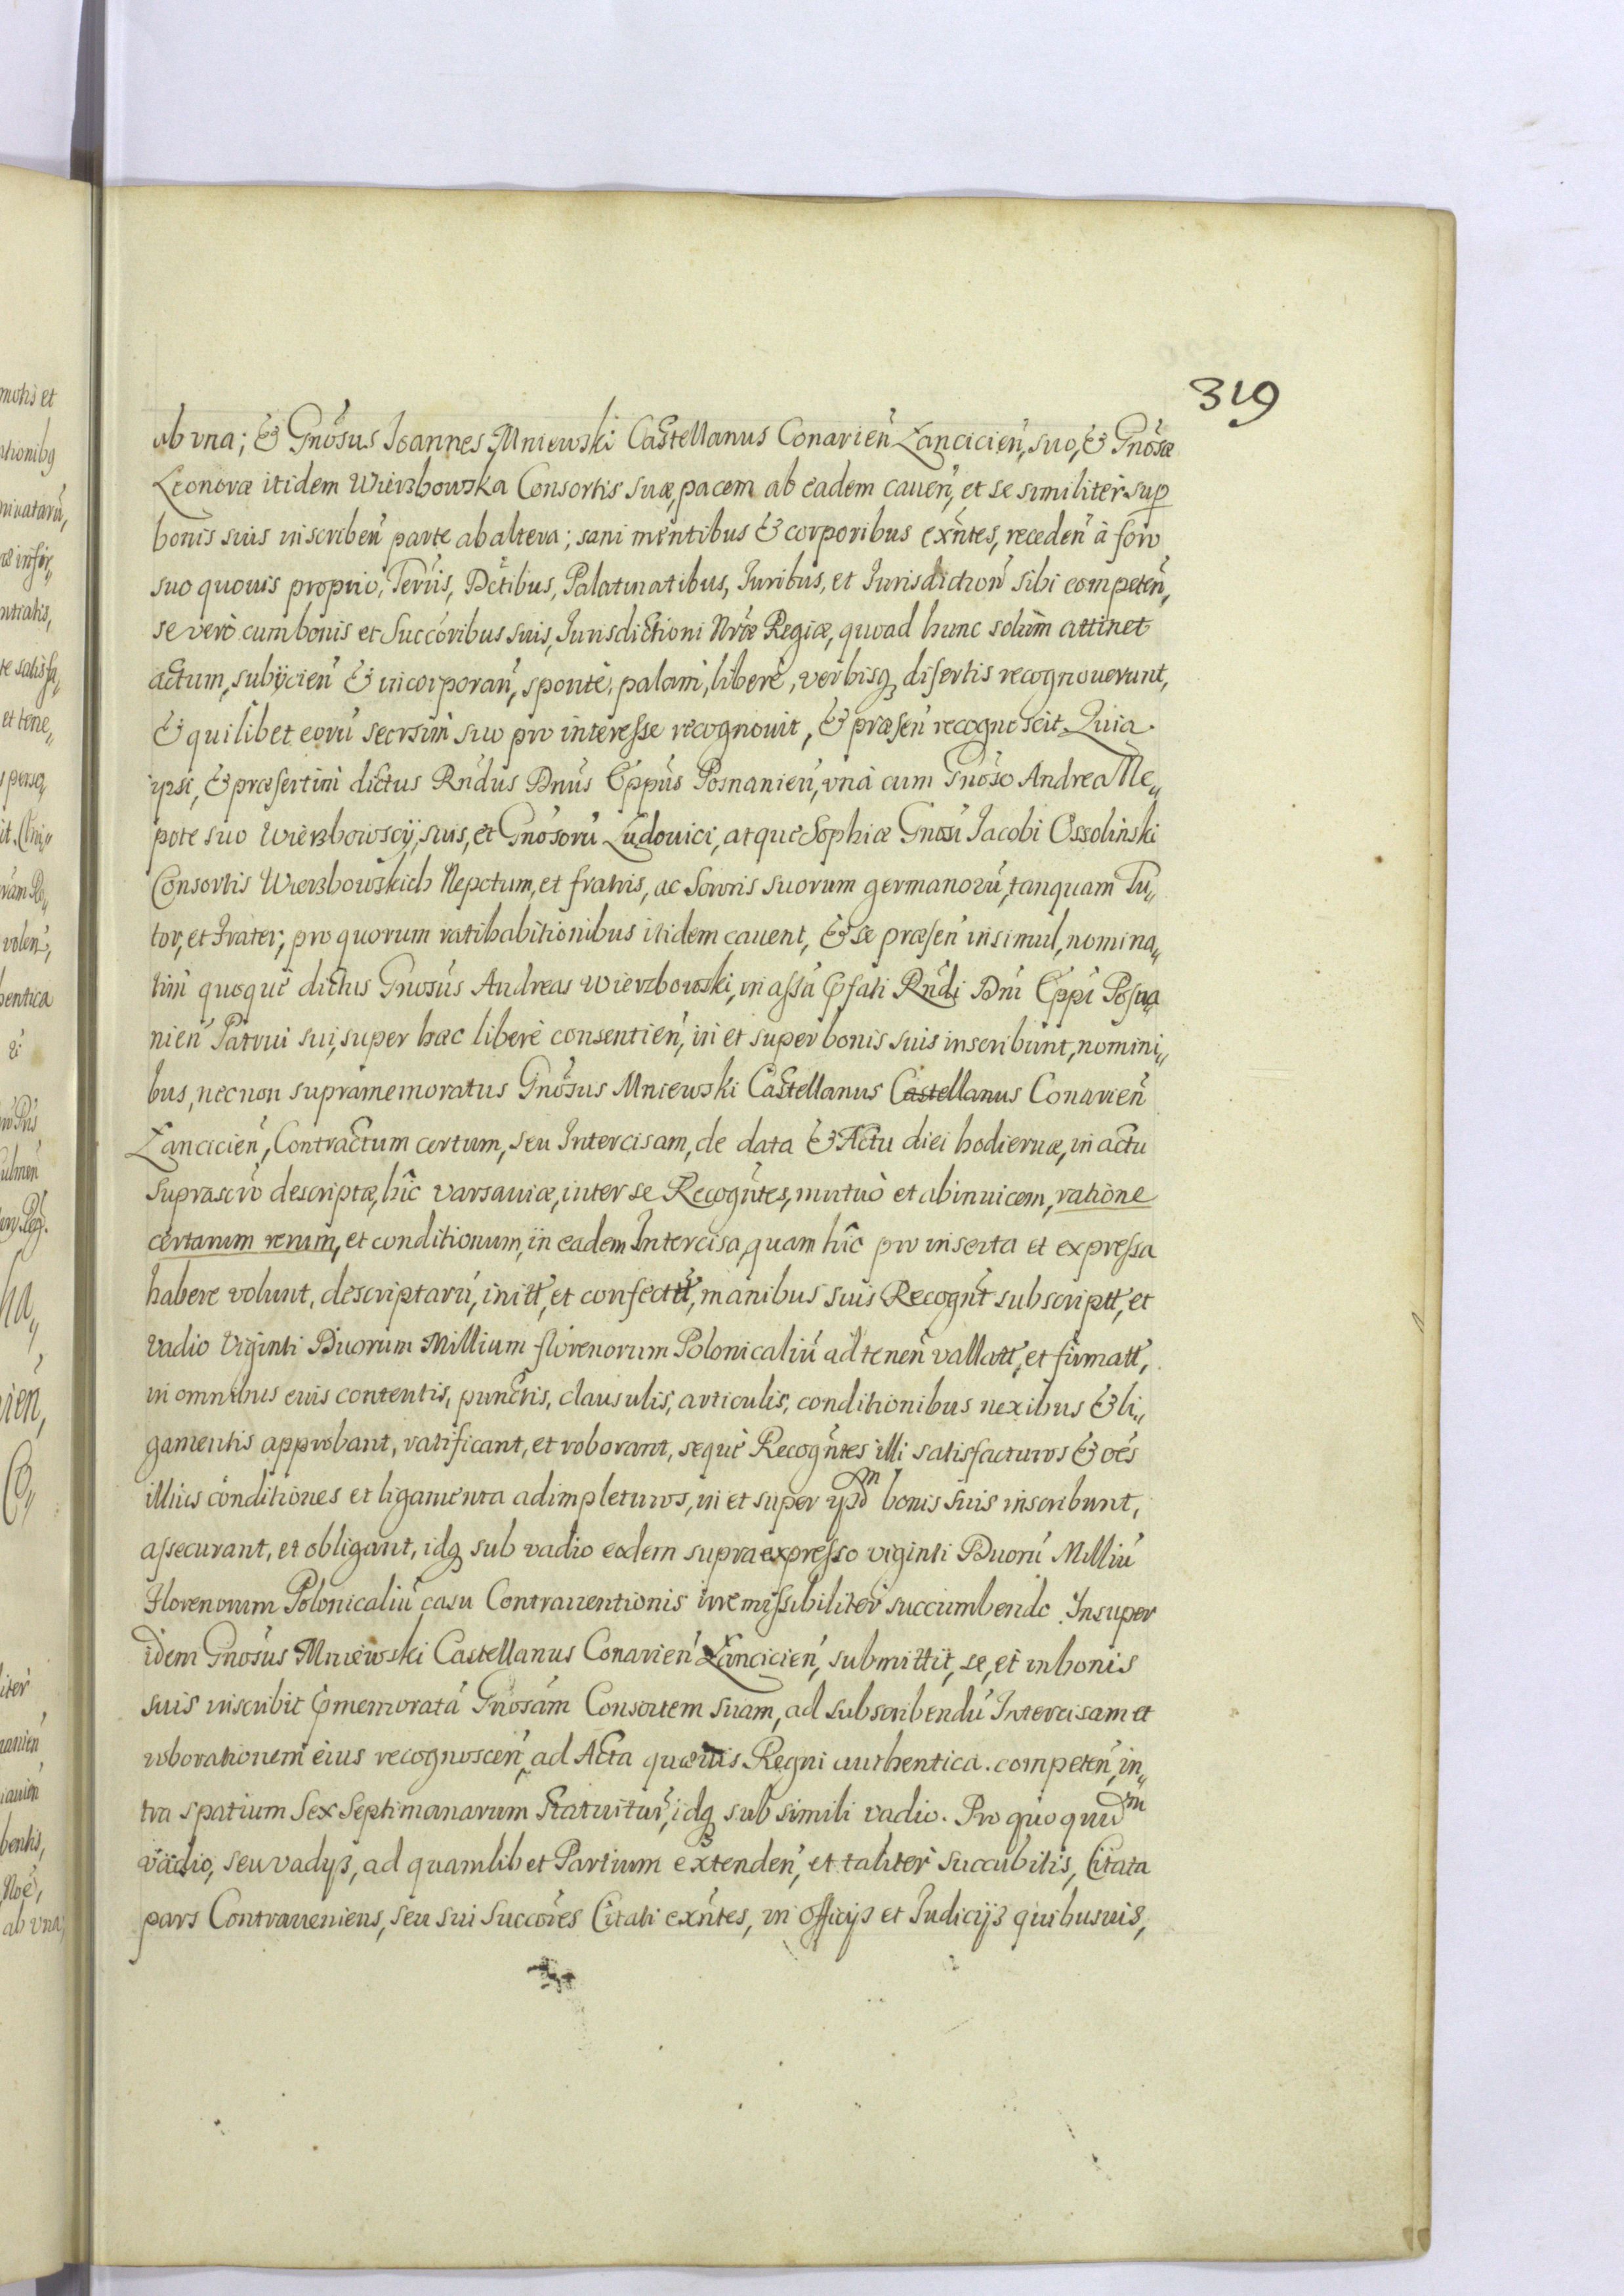 319
ab vna; & Gnosus Joannes Mniewski Castellanus Conarien̄ Lancicien̄, suo, & Gnosæ
Leonoræ itidem Wierzbowska Consortis suæ, pacem ab eadem cauen̄, et se similiter sup
bonis suis inscriben̄ parte ab altera; sani mentibus & corporibus exn̄tes, receden̄ à foro
suo quouis proprio, Terris, Dc̄tibus, Palatinatibus, Juribus, et Jurisdiction̄ sibi competen̄,
se verò cum bonis et Succoribus suis, Jurisdictioni Nr̄æ Regiæ, quoad hunc solùm attinet
actum, subijcien̄ & incorporan̄, spontè, palàm, liberè, verbisq, disertis recognouerunt,
& quilibet eorū seorsim suo pro interesse recognouit, & præsen̄ recognoscit. Quia
ipsi, & præsertim dictus Rndus Dnus Eppus Posnanien̄, vnà cum Gnoso Andrea Ne„
pote suo Wierzbowscÿ, suis, et Gnosorū Ludouici, atque Sophiæ Gnosi Jacobi Ossolinski
Consortis Wierzbowskich Nepotum, et fratris, ac Sororis suorum germanorū, tanquam Tu„
tor, et Frater, pro quorum ratihabitionibus itidem cauent, & se præsen̄ insimul, nomina„
tim quoque dictus Gnosus Andreas Wierzbowski, in assā p̄fati Rndi Dni Eppi Posna„
nien̄ Patrui sui, super hæc liberè consentien̄, in et super bonis suis inscribunt, nomini„
bus, necnon supramemoratus Gnosus Mniewski Castellanus Castellanus Conarien̄
Lancicien̄, Contractum certum, seu Intercisam, de data & Actu diei hodiernæ, in actu
suprascro descriptæ, hîc Varsauiæ, inter se Recogn̄tes, mutuò et abinuicem, ratione
certarum rerum, et conditionum, in eadem Intercisa, quam hîc pro inserta et expressa
habere volunt, descriptarū, initt, et confectt, manibus suis Recogn̄t subscriptt, et
vadio Viginti Duorum Millium florenorum Polonicaliū ad tenen̄ vallatt, et firmatt,
in omnibus euis contentis, punctis, clausulis, articulis, conditionibus nexibus & li„
gamentis approbant, ratificant, et roborant, seque Recogn̄tes illi satisfacturos & oēs
illius conditiones et ligamenta adimpleturos, in et super ijsdm bonis suis inscribunt,
assecurant, et obligant, idq sub vadio eodem supraexpresso viginti Duorū Milliū
Florenorum Polonicaliū casu Contrauentionis irremissibiliter succumbendo. Insuper
idem Gnosus Mniewski Castellanus Conarien̄ Lancicien̄, submittit, se, et in bonis
suis inscribit p̄memoratā Gnosam Consortem suam, ad subscribendū Intercisam et
roborationem eius recognoscen̄, ad Acta quæuis Regni authentica. competen̄, in„
tra spatium Sex Septimanarum Statuitur, idq sub simili vadio. Pro quo quidm
vadio, seu vadijs, ad quamlibet Partium extenden̄, et taliter succubitis, Citata
pars Contraueniens, seu sui Succores Citati exn̄tes, in Officijs et Judicijs quibusuis,